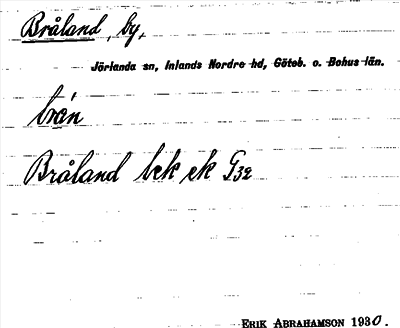 Bråland, by,
Jörlanda sn, Inlands Nordre hd, Göteb. o. Bohus län.
Bråland bek ek G32
ERIK ABRAHAMSON 1930.